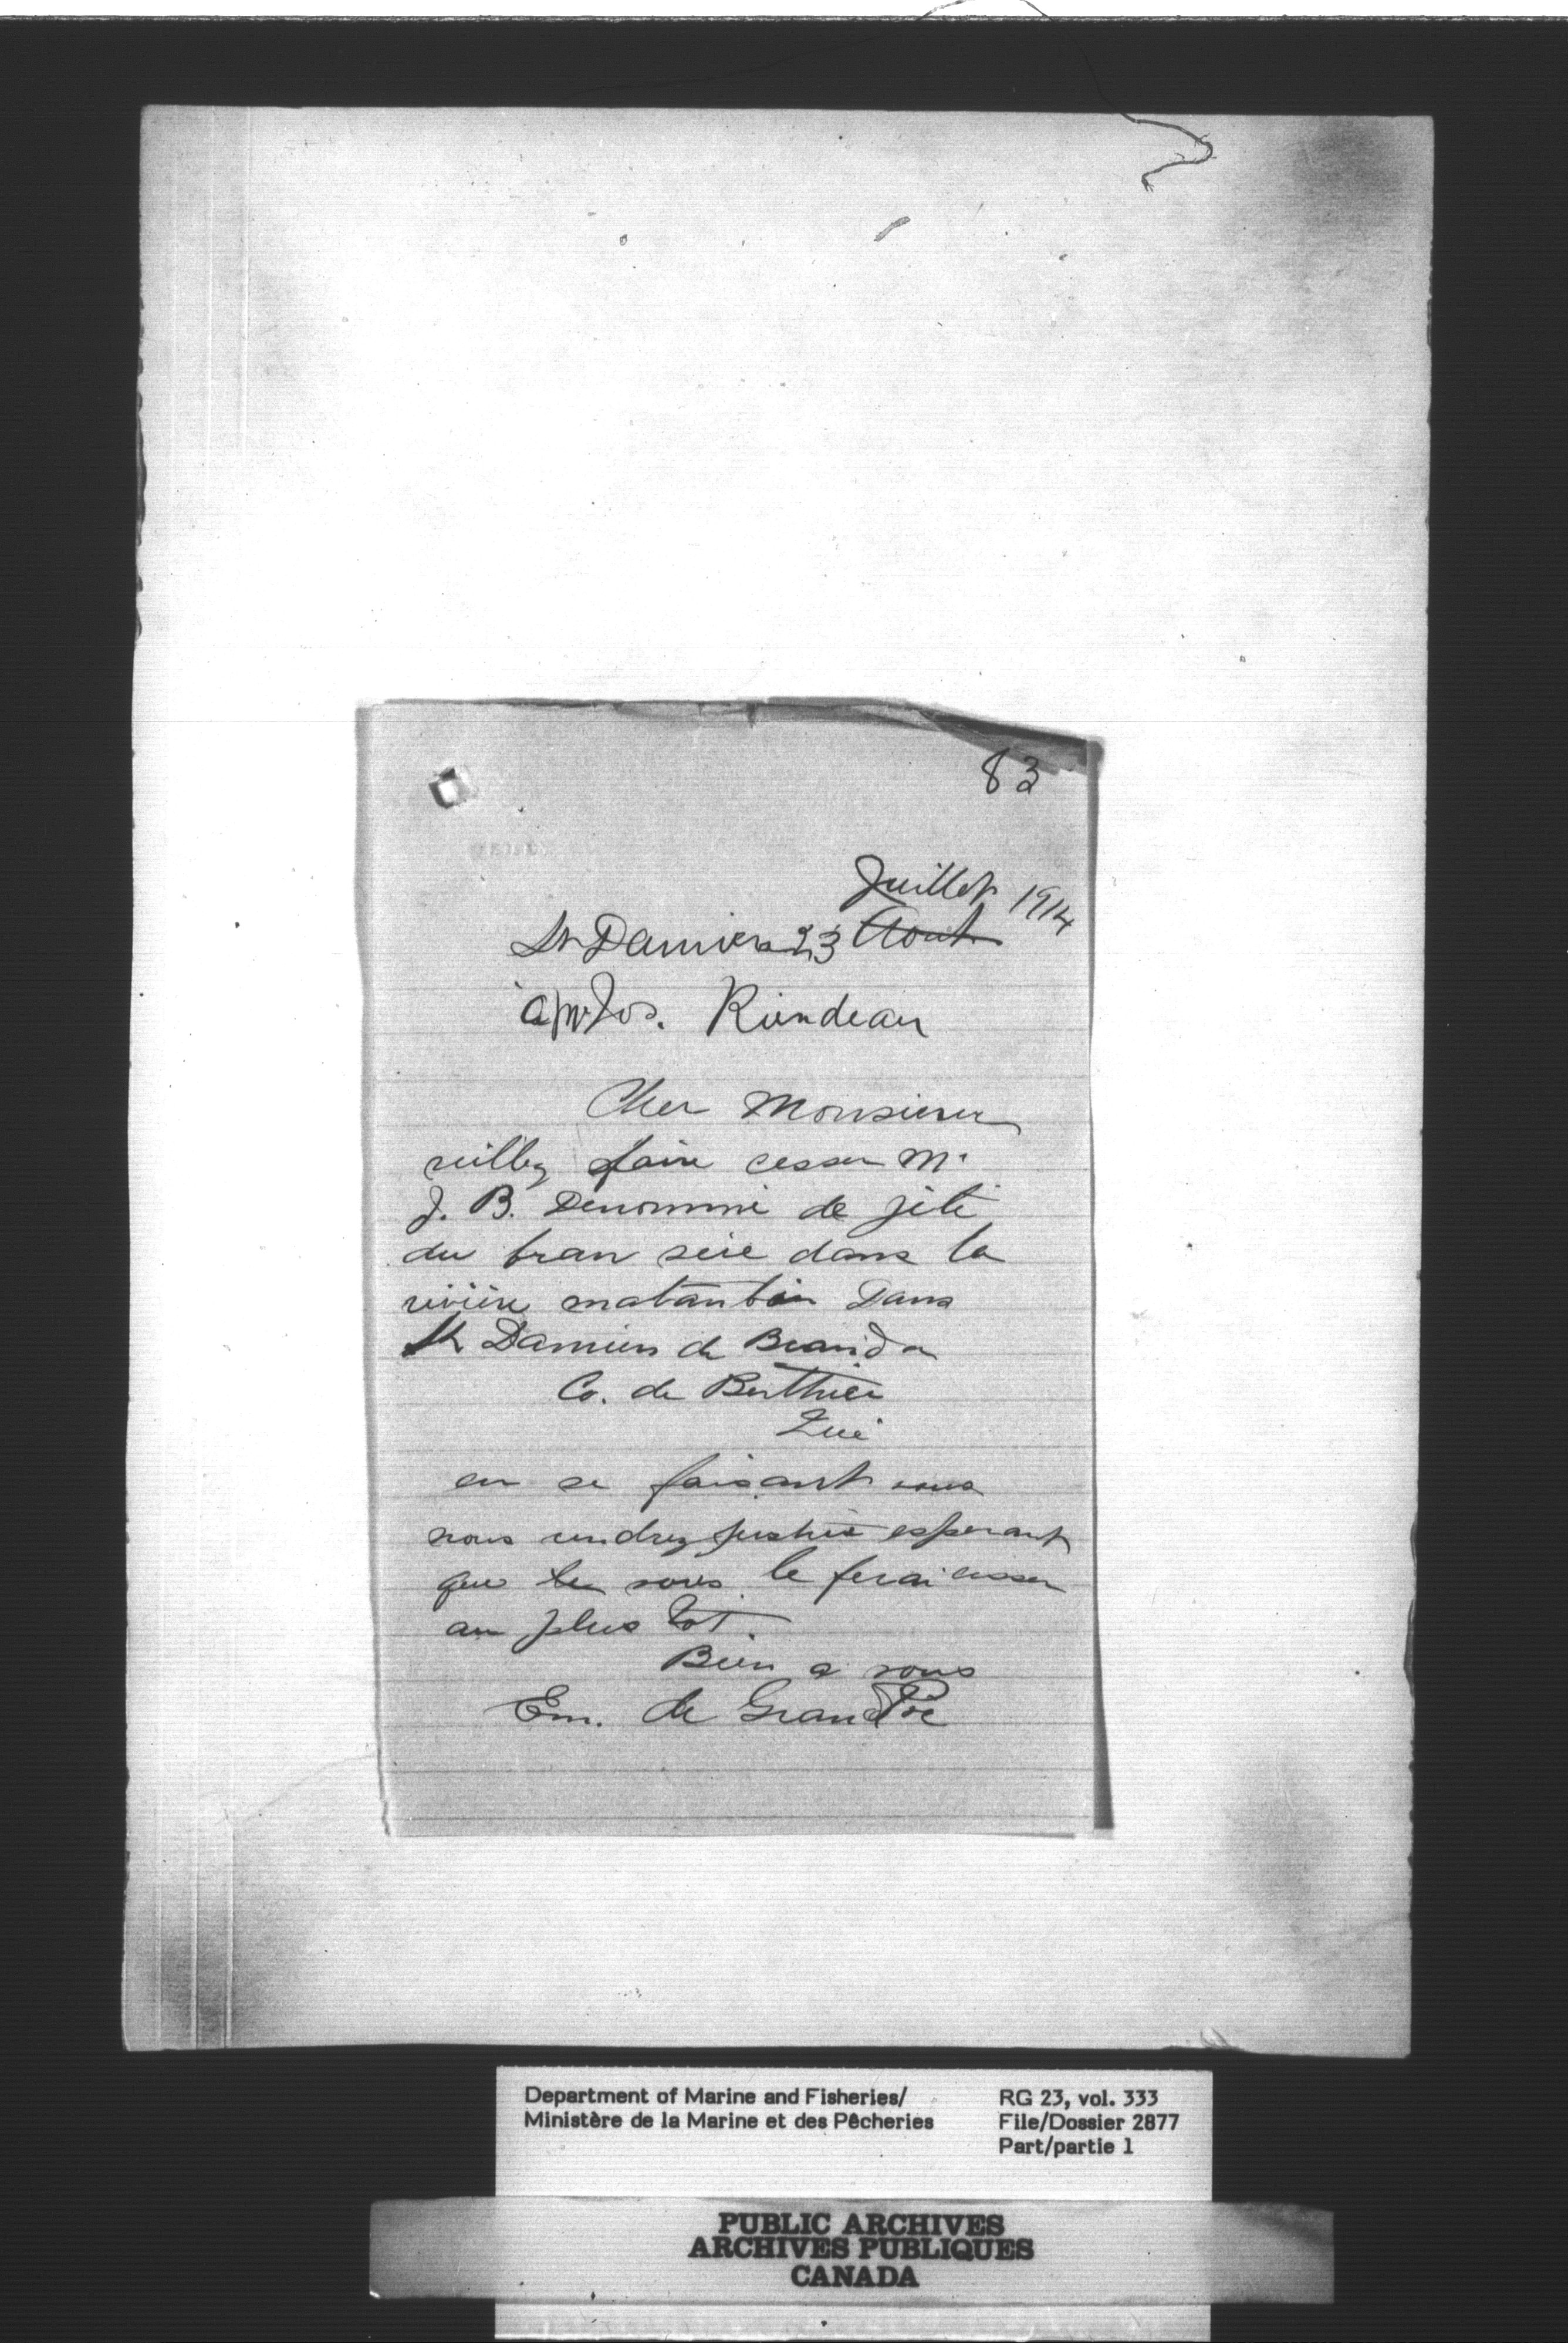 83
Juillet 1914
St Damien 23 Aout
à Mr Jos. Rondeau
Cher Monsieur
veillez faire cesser Mr
J. B. Denommé de jété
du bran scie dans la
rivière matanbin Dans
St Damien de Brandon
Co. de Berthier
Qué
en se faisant vous
nous rendrez justice esperant
que vous le ferai cesser
au plus tot.
Bien a vous
Em. de GrandPré
Department of Marine and Fisheries/ RG 23, vol. 333
Ministère de la Marine et des Pêcheries File/Dossier 2877
Part/partie 1
PUBLIC ARCHIVES
ARCHIVES PUBLIQUES
CANADA